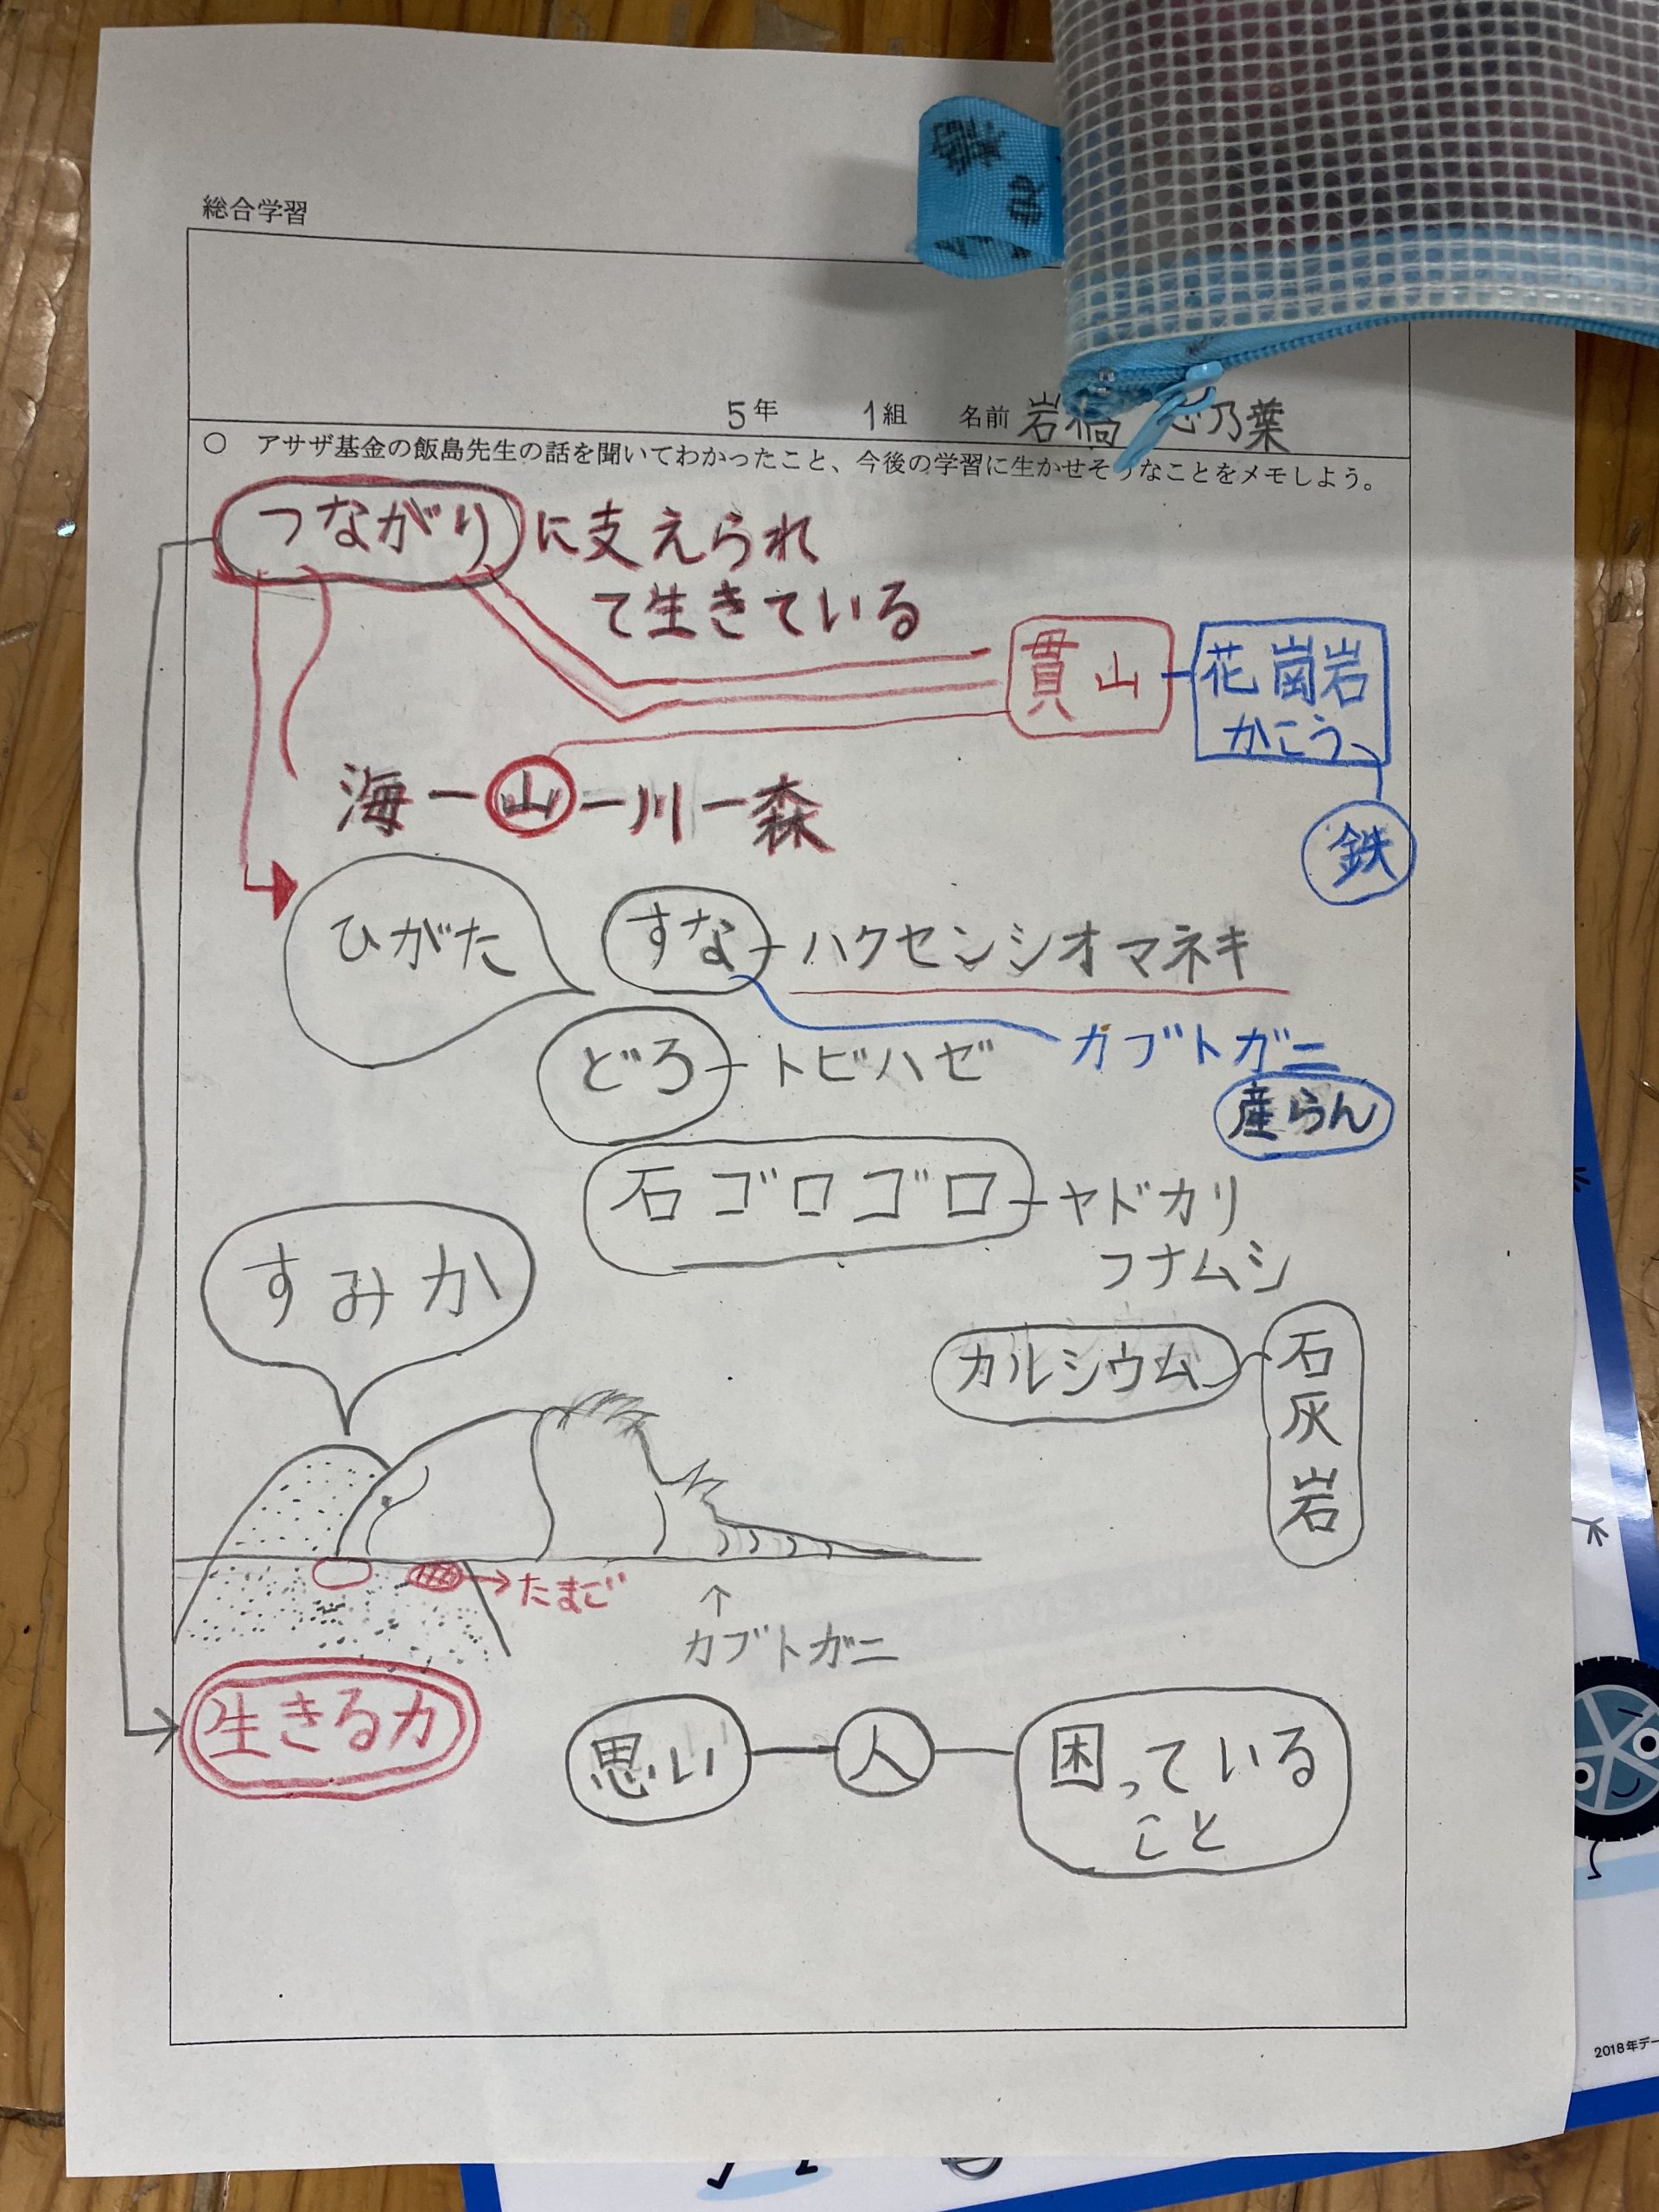 総合学習
5年 1組 名前 岩橋 乃葉
○ アサザ基金の飯島先生の話を聞いてわかったこと、今後の学習に生かせそうなことをメモしよう。
つながりに支えられ
て生きている
貫山
花崗岩
かこう
鉄
海ー山ー川ー森
ひがた
すな
ハクセンシオマネキ
カブトガニ
産らん
どろ
トビハゼ
石ゴロゴロ
ヤドカリ
フナムシ
カルシウム
石灰岩
すみか
たまご
カブトガニ
生きる力
思い
人
困っている
こと
2018年デー